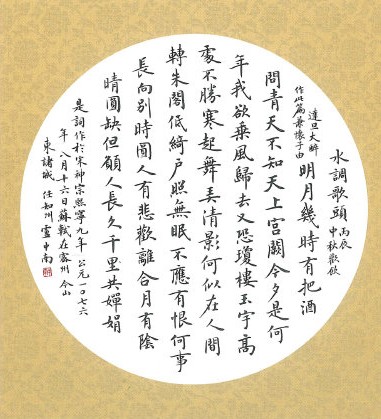 水調歌頭 丙辰
中秋歡飲
達旦大醉
作此篇兼懷子由
明月幾時有把酒
問青天不知天上宮闕今夕是何
年我欲乘風歸去又恐瓊樓玉宇高
處不勝寒起舞弄清影何似在人間
轉朱閣低綺戶照無眠不應有恨何事
長向別時圓人有悲歡離合月有陰
晴圓缺但願人長久千里共嬋娟
是詞作於宋神宗熙寧九年 公元一〇七六
年 八月十六日蘇軾在密州 今山
東諸城 任知州 盧中南